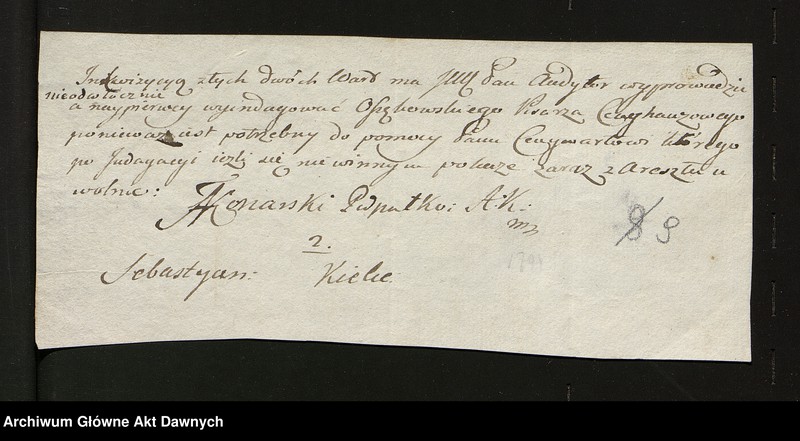 Inkwizycyą ztych dwóch Ward ma JW Pan Audytor wyprowadzić
nieodwłocznie
a naypierwey wyindagować Pisarza Ceyghauzowego
ponieważ iest potrzebny do pomocy Panu Ceugwartowi którego
po Indagacyi ieżli się niewinnym pokaże zaraz z Aresztu u
wolnić:
Konarski Podpułko: A: K:
mp
8 9
2.
Sebastyan: Kielc
Archiwum Główne Akt Dawnych